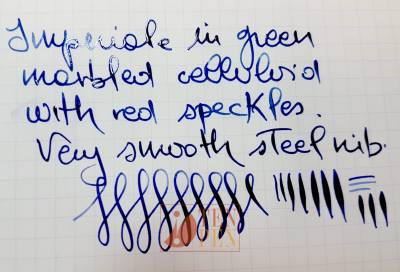 Imperiale in green
marbled celluloid
with red speckles.
Very smooth steel nib.
TEN
PEN